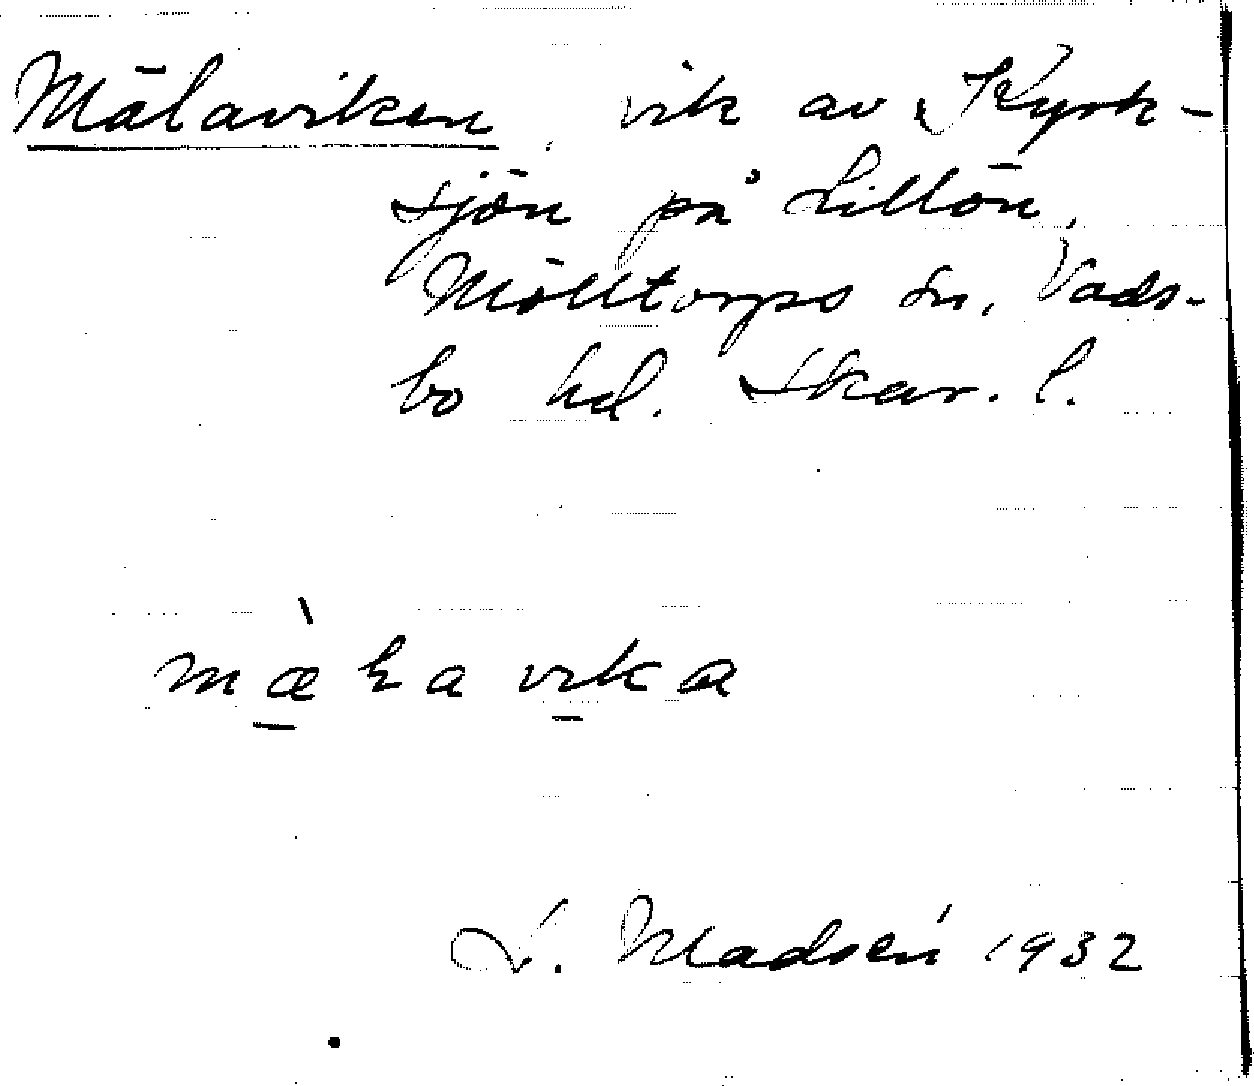 Mälaviken, vik av Kyrk-
sjön på Lillön,
Mölltorps sn, Vads-
bo hd. Skar. l.
mæ̀ɫavika
Madsén 1932